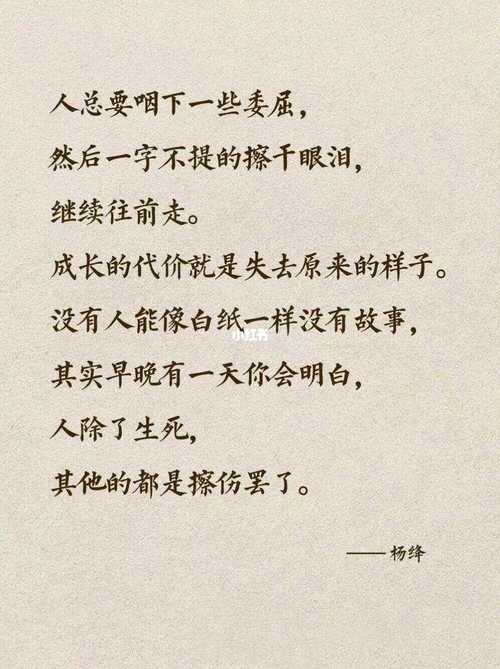 人总要咽下一些委屈，
然后一字不提的擦干眼泪，
继续往前走。
成长的代价就是失去原来的样子。
没有人能像白纸一样没有故事，
小红书
其实早晚有一天你会明白，
人除了生死，
其他的都是擦伤罢了。
——杨绛